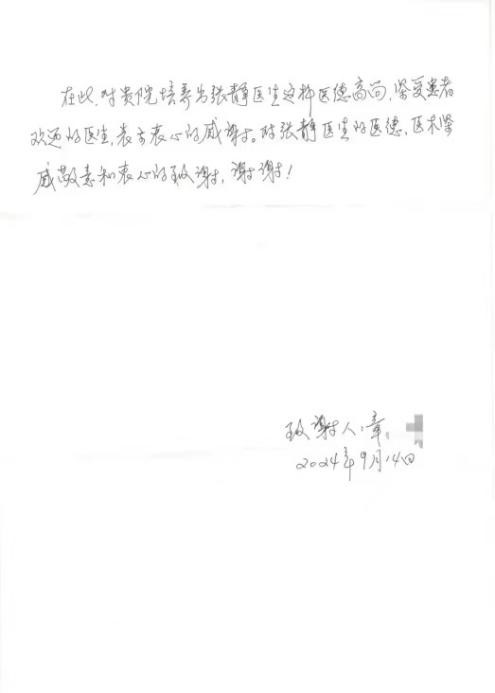 在此，对贵院培养出张静医生这种医德高尚，深受患者
欢迎的医生，表示衷心的感谢。对张静医生的医德，医术深
感敬意和衷心的致谢，谢谢！
致谢人：章
2024年9月14日